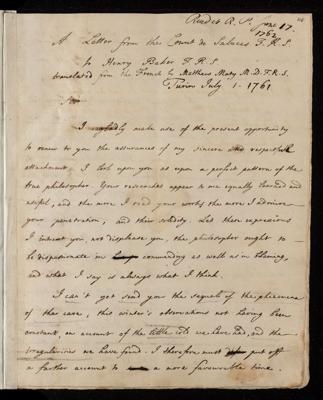 Read at R.S. June 17.
1762
A Letter from the Count de Saluces F.R.S.
to Henry Baker F.R.S.
translated from the French by Matthew Maty M.D. F.R.S.
Turin July 1. 1761
Sir
I gladly make use of the present opportunity
to renew to you the assurances of my sincere and respectful
attachment. I look upon you as upon a perfect pattern of the
true philosopher. Your researches appear to me equally learned and
useful, and the more I read your works the more I admire
your penetration, and their solidity. Let these expressions
I intreat you, not displease you, the philosopher ought to
be dispassionate in commending as well as in blaming,
and what I say is always what I think.
I can't yet send you the sequel of the phenomena
of the cave, this winter's observations not having been
constant, on account of the little we have had, and the
irregularities we have found. I therefore must put off
a farther account to a more favourable time.